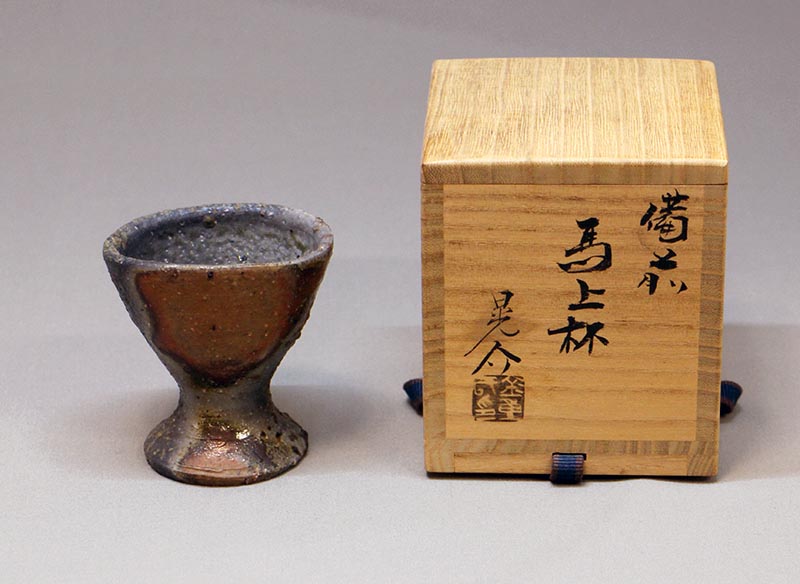 備前
馬上杯
晃介